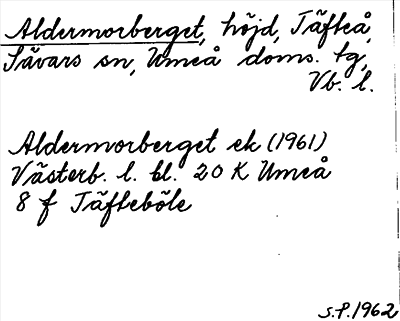 Aldermorberget, höjd, Täfteå,
Sävars sn, Umeå doms. tg,
Vb. l.
Aldermorberget ek (1961)
Västerb. l. bl. 20 K Umeå
8 f Täfteböle
S.P. 1962